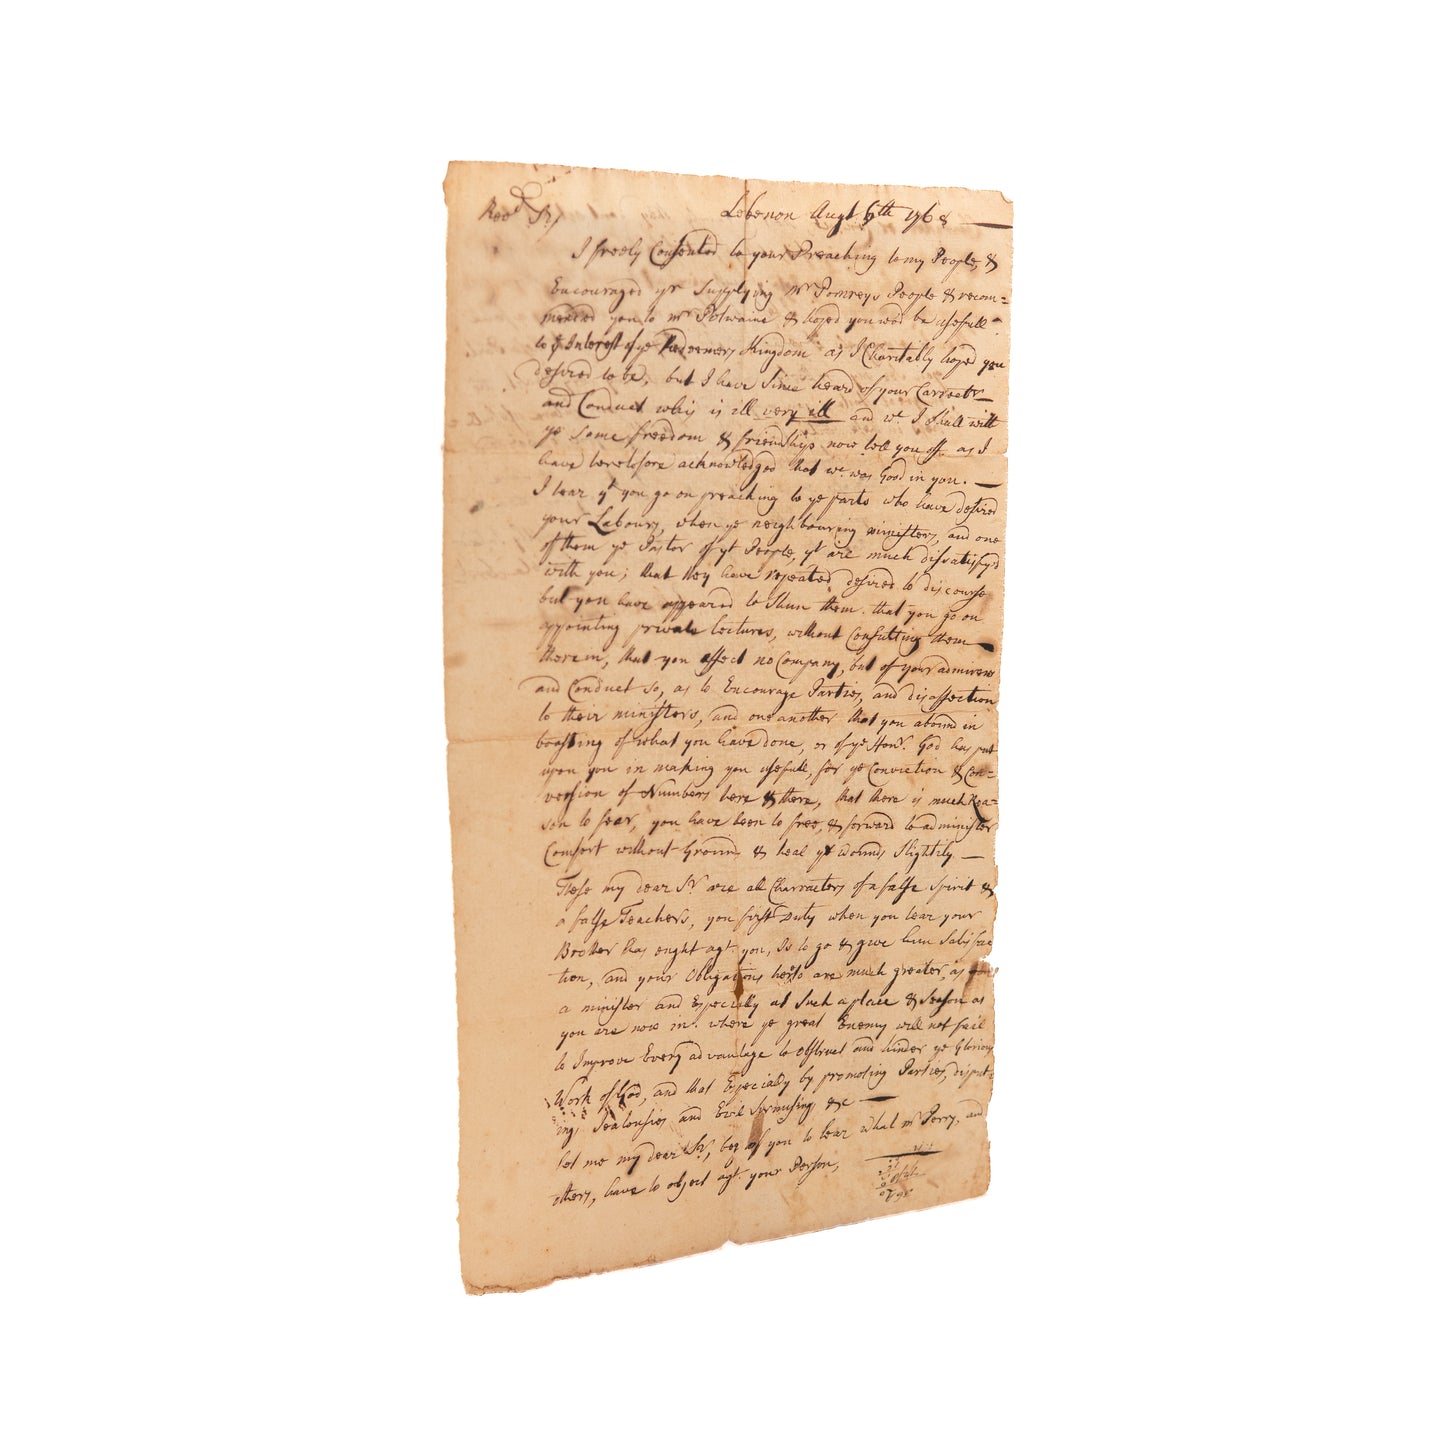 Revd Sr, Lebenon Augt 6th 1768
I freely Consented to your Preaching to my People, &
Encouraged yr Supplying Mr Pomreys People & recom=
mended you to Mr Potwaine & hoped you wod be usefull
to ye Interest of ye Redeemers Kingdom as I Charitably hoped you
desired to be, but I have Since heard of your Carractr
and Conduct whis is ill very ill and wt I Shall with
ye Same freedom & friendship now tell you off as I
have heretofore acknowledged that wt was Good in you.
I hear yt you go on preaching to ye parts who have desired
your Labours, when ye neighbouring ministers, and one
of them ye Pastor of yt People, yt are much dissatisfyd
with you; that they have repeated desired to discourse
but you have appeared to Shun them. that you go on
appointing private lectures, without Consulting them
therein, that you affect no Company, but of your admirers
and Conduct so, as to Encourage Parties, and disaffection
to their ministers, and one another that you abound in
boasting of what you have done, or of ye Honr. God has put
upon you in making you usefull, for ye Conviction & Con=
version of Numbers here & there, that there is much Rea=
son to fear, you have been to free, & forward to administer
Comfort without Ground, & heal ye wounds Slightily.
These my dear Sr. are all Characters of a false Spirit &
a false Teachers, you first Duty when you hear your
Brother has ought agt. you, Is to go & give him Satisfac
tion, and your Obligations hereto are much greater, as
a minister and Especially at Such a place & Season as
you are now in. where ye great Enemy will not fail
to Improve Every advantage to Obstruct and hinder ye Glorious
Work of God, and that Especially by promoting Parties, disput=
ing, Jealousies and Evil Surmising, &c
let me my dear Sr, beg of you to hear what Mr Perry, and
others, have to object agt. your Person,